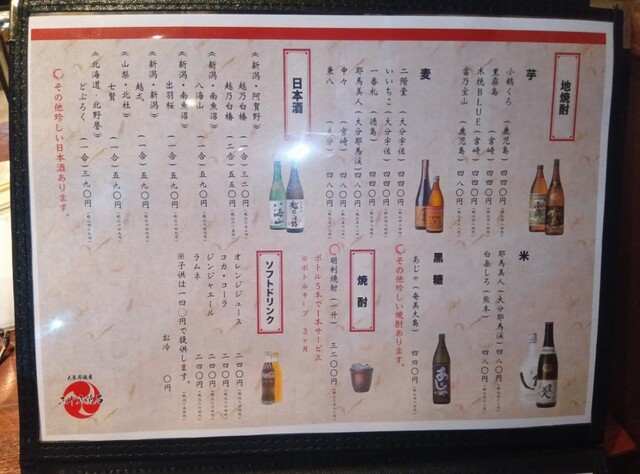 地焼酎
芋
小鶴くろ （鹿児島） 四四〇円
黒霧島 （宮崎） 四四〇円
木挽BLUE （宮崎） 四四〇円
富乃宝山 （鹿児島） 四八〇円
麦
二階堂 （大分宇佐） 四四〇円
いいちこ （大分宇佐） 四四〇円
一番札 （徳島） 四四〇円
耶馬美人 （大分耶馬渓） 四八〇円
中々 （宮崎） 四八〇円
兼八 （大分） 四八〇円
日本酒
《新潟・阿賀野》
越乃白椿 （一合） 三二〇円
越乃白椿 （二合） 五五〇円
《新潟・南魚沼》
八海山 （一合） 五九〇円
《新潟・南魚沼》
出羽桜 （一合） 五九〇円
《新潟・新潟》
越式 （一合） 五九〇円
《山梨・北杜》
七賢 （一合） 五九〇円
《北海道・北野誉》
どぶろく （一合） 三九〇円
〇その他珍しい日本酒あります。
米
耶馬美人 （大分耶馬渓） 四八〇円
白岳しろ （熊本） 四八〇円
黒糖
あじゃ （奄美大島） 四四〇円
〇その他珍しい焼酎あります。
焼酎
〇明利焼酎 （一升） 三二〇〇円
ボトル5本で1本サービス
※ボトルキープ 3ヶ月
ソフトドリンク
オレンジジュース 二四〇円
コカ・コーラ 二四〇円
ジンジャエール 二四〇円
ラムネ 二四〇円
※子供は一四〇円で提供します。
お冷 〇円
大衆居酒屋